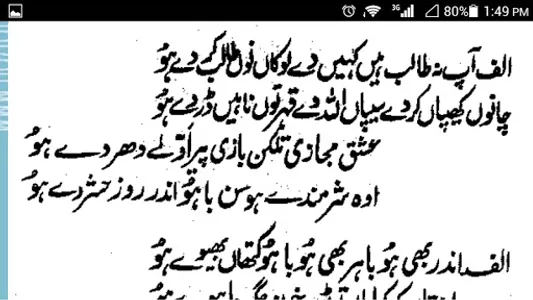 3G 80% 1:49 PM
الف آپ نہ طالب ہیں کہیں دے لوکاں نوں طالب کردے ہُو
چانوں کھیپاں کردے سیپاں اللہ دے قہر توں ناہیں ڈردے ہُو
عشق مجازی تلکن بازی پیر اَوّلے دھردے ہُو
اوہ شرمندے ہوسن باہُو اندر روز حشر دے ہُو
الف اندر بھی ہُو باہر بھی ہُو باہُو کتھاں لبھیوے ہُو